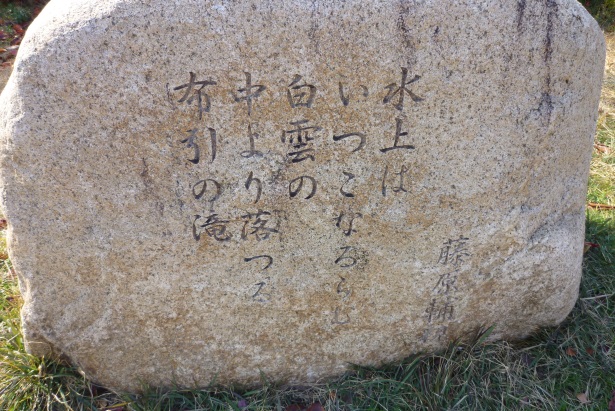 水上は
いつこなるらし
白雲の
中より落つる
布引の滝
藤原輔